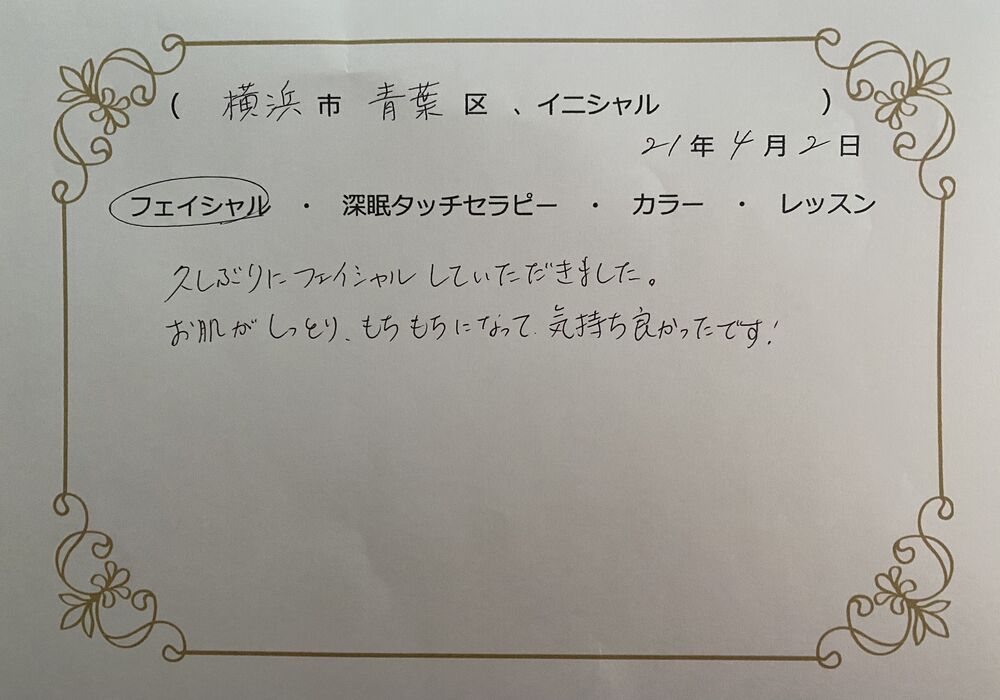 ( 横浜 市 青葉 区 、イニシャル )
21年 4月 2日
フェイシャル ・ 深眠タッチセラピー ・ カラー ・ レッスン
久しぶりにフェイシャルしていただきました。
お肌がしっとり、もちもちになって、気持ち良かったです!